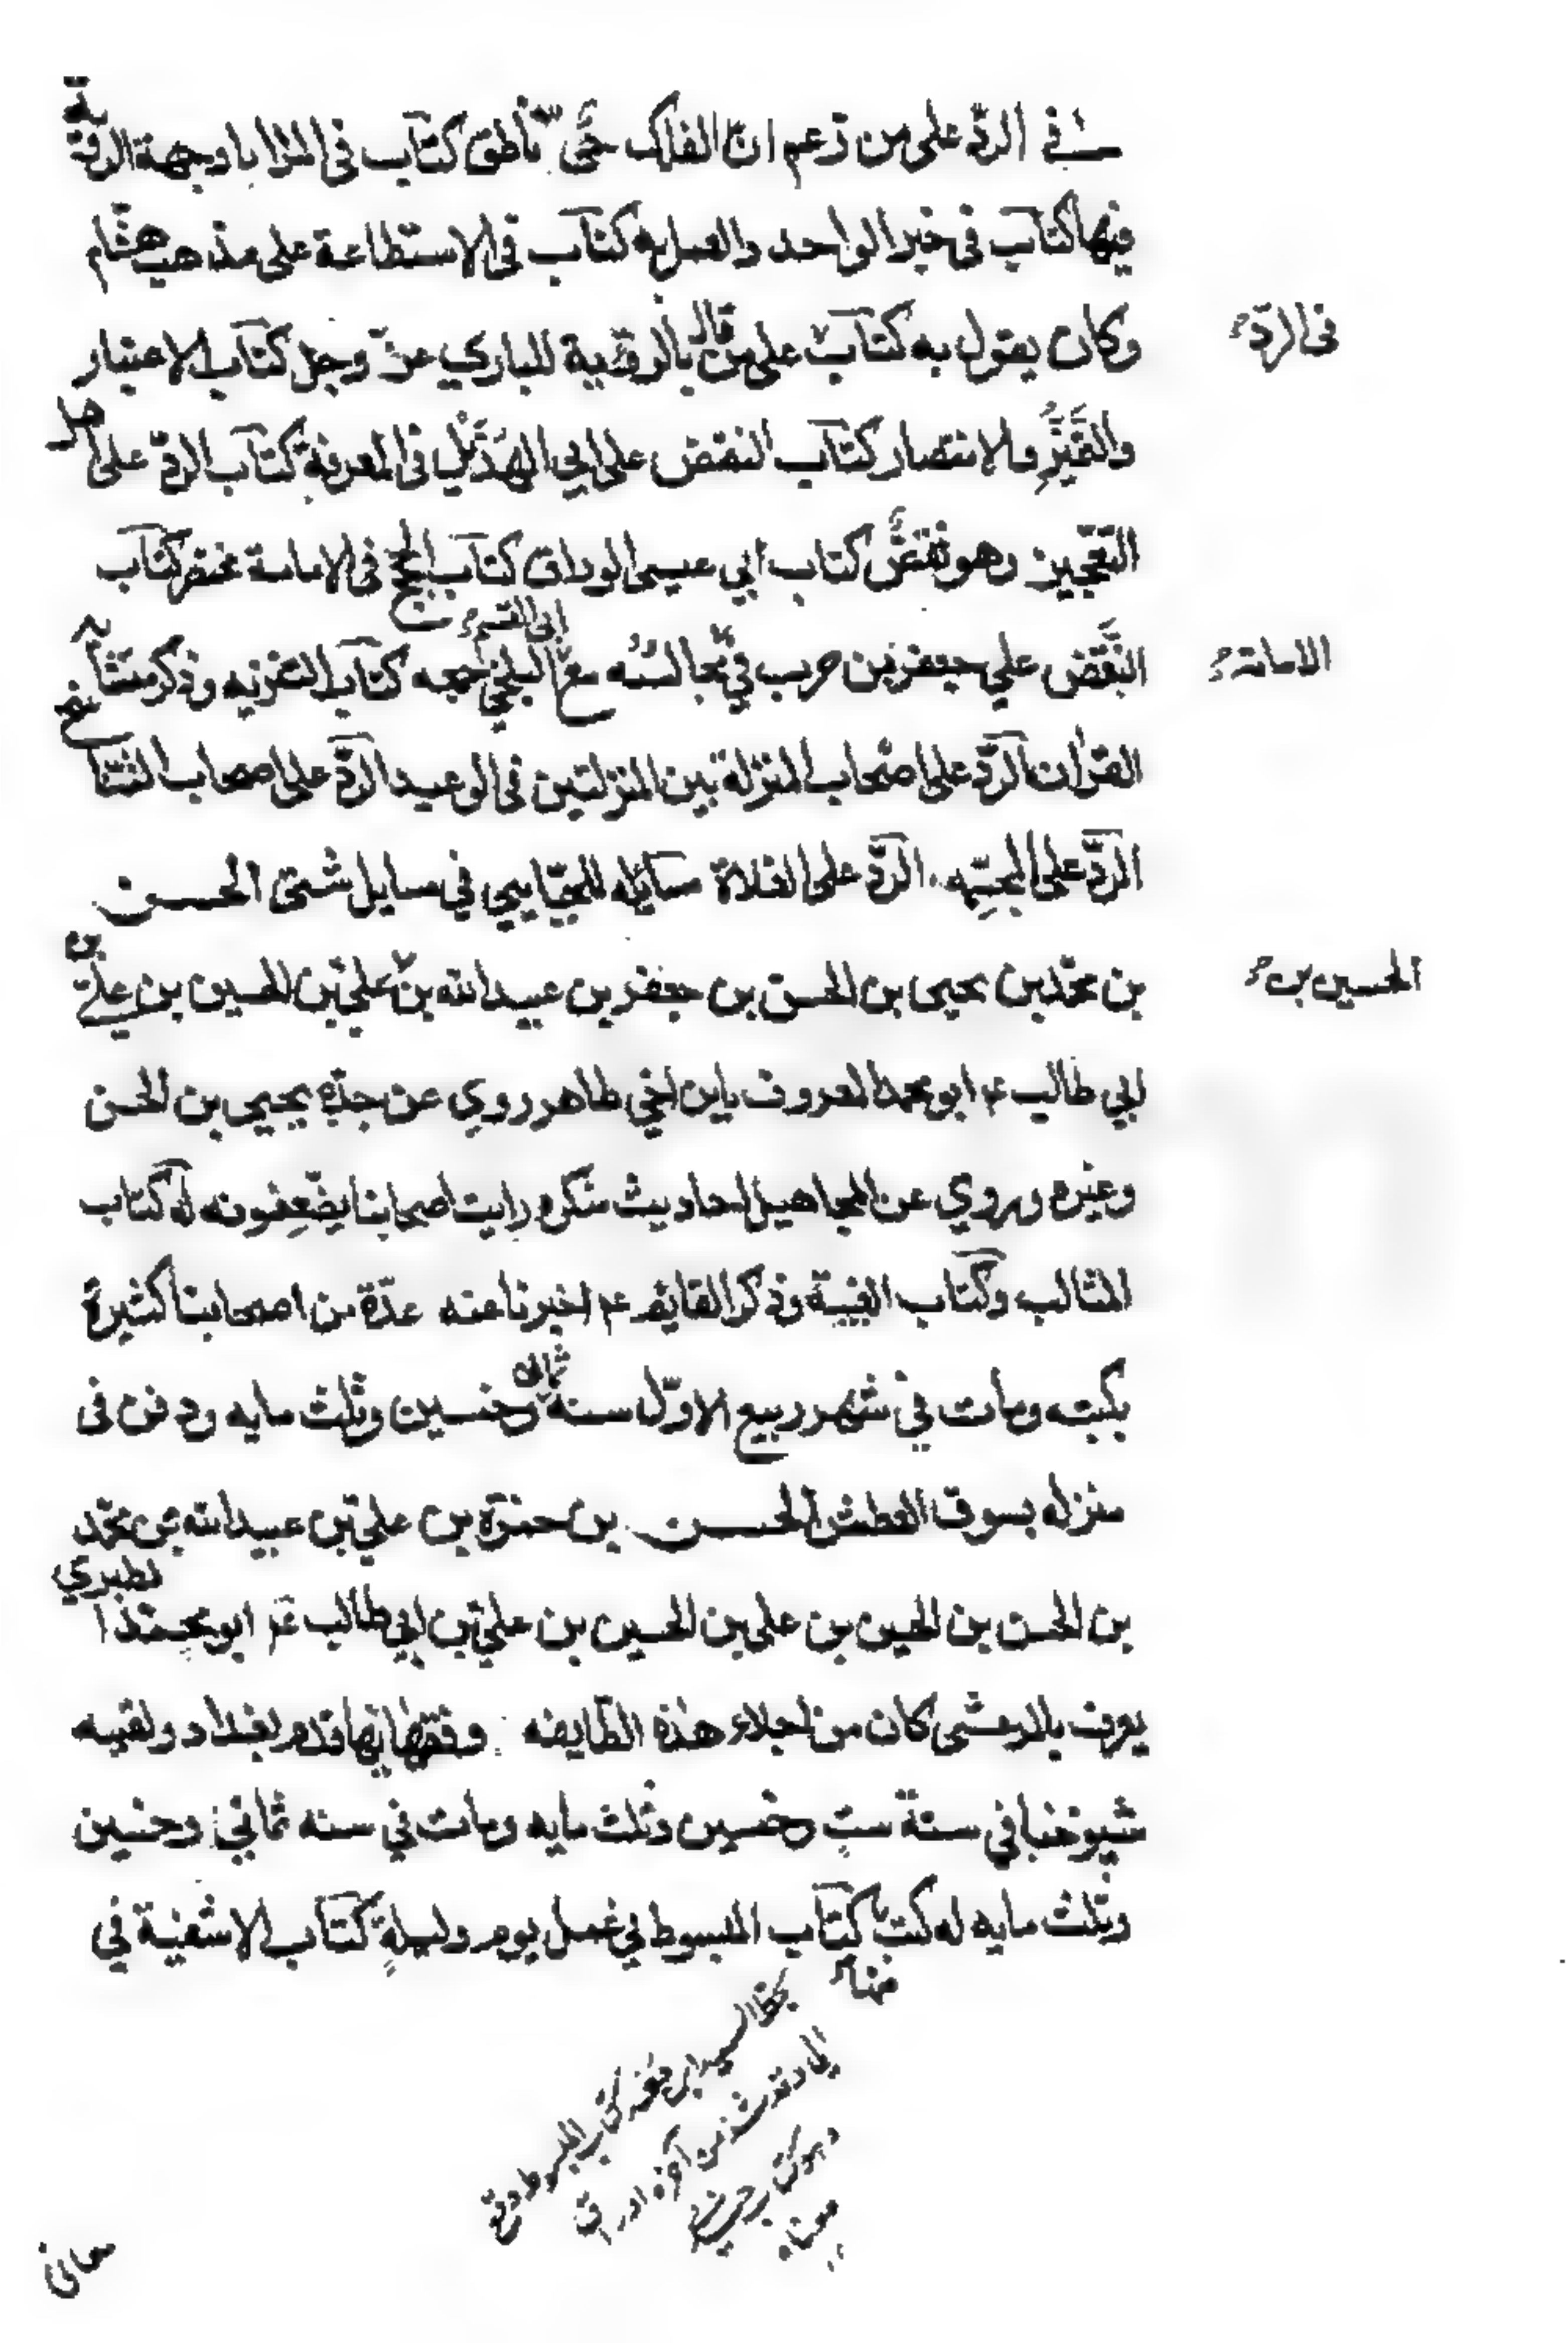 في الردّ على من زعم ان الفلك حيّ ناطق كتاب في المرايا وجهة الروية
فيها كتاب في خبر الواحد والعمل به كتاب في الاستطاعة على مذهب هشام
وكان يقول به كتاب على من قال بالروية للباري عزّ وجل كتاب الاعتبار
في الردّ
والتمييز والانتصار كتاب النقض على ابي الهذيل في المعرفة كتاب الردّ على اهل
التعجيز وهو نقض كتاب ابي عيسى الوراق كتاب الحجج في الامامة مختصر كتاب
النقض على جعفر بن حرب في مجالسه مع ابي القسم البلخي جمعه كتاب التنزيه وذكر متشابه
الامامة
القران الردّ على اصحاب المنزلة بين المنزلتين في الوعيد الردّ على اصحاب التناسخ
الردّ على المجسّمه الردّ على الغلاة مسايله للجبّايي في مسايل شتى الحسن
بن محمّد بن يحيى بن الحسن بن جعفر بن عبيد الله بن علي بن الحسين بن علي بن
الحسين بن
ابي طالب ع ابو محمد المعروف بابن اخي طاهر روي عن جدّه يحيى بن الحسن
وغيره وروي عن المجاهيل احاديث منكره رايت اصحابنا يضعفونه له كتاب
المثالب وكتاب الغيبة وذكر القايم ع اخبرنا عنه عدّة من اصحابنا كثيرة
بكتبه ومات في شهر ربيع الاوّل سنة ثمان وخمسين وثلث مايه ودفن في
منزله بسوق العطش الحسن بن حمزة بن علي بن عبيد الله بن محمّد
بن الحسن بن الحسين بن علي بن الحسين بن علي بن ابي طالب ع ابو محمّد الطبري
يعرف بالمرعشي كان من اجلاء هذه الطايفه وفقهائها قدم بغداد ولقيه
شيوخنا في سنة ست وخمسين وثلث مايه ومات في سنه ثماني وخمسين
وثلث مايه له كتب كتاب المبسوط في عمل يوم وليلة كتاب الاشفية في
منها
معاني